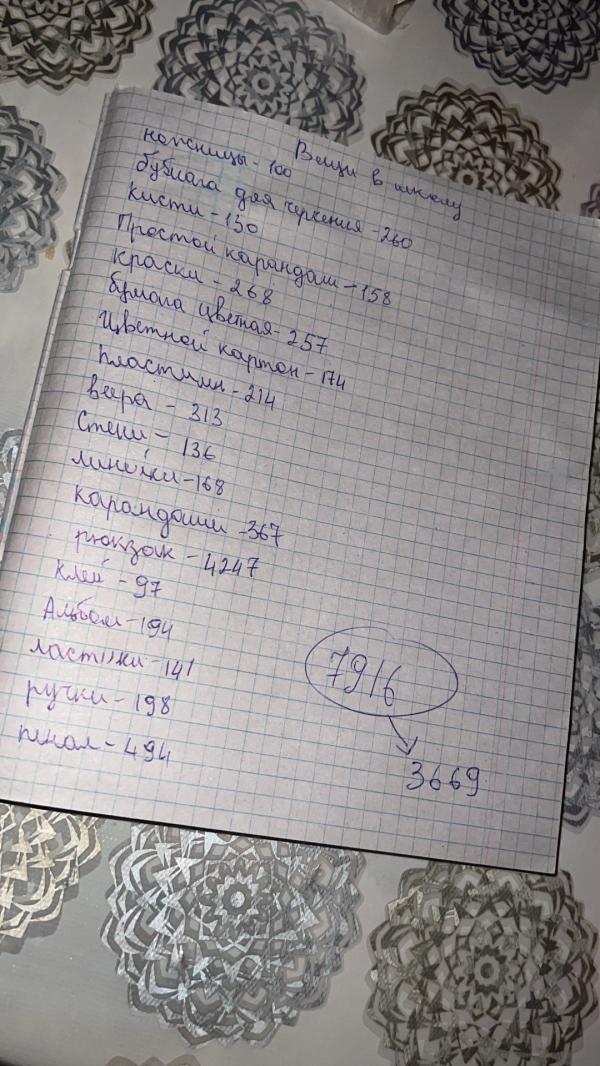 Вещи в школу
ножницы - 100
бумага для черчения - 260
кисти - 130
Простой карандаш - 158
краски - 268
бумага цветная - 257
Цветной картон - 174
пластилин - 214
веера - 313
Стеки - 136
линейки - 168
карандаши - 367
рюкзак - 4247
Клей - 97
Альбом - 194
ластики - 141
ручки - 198
пенал - 494
7916
3669